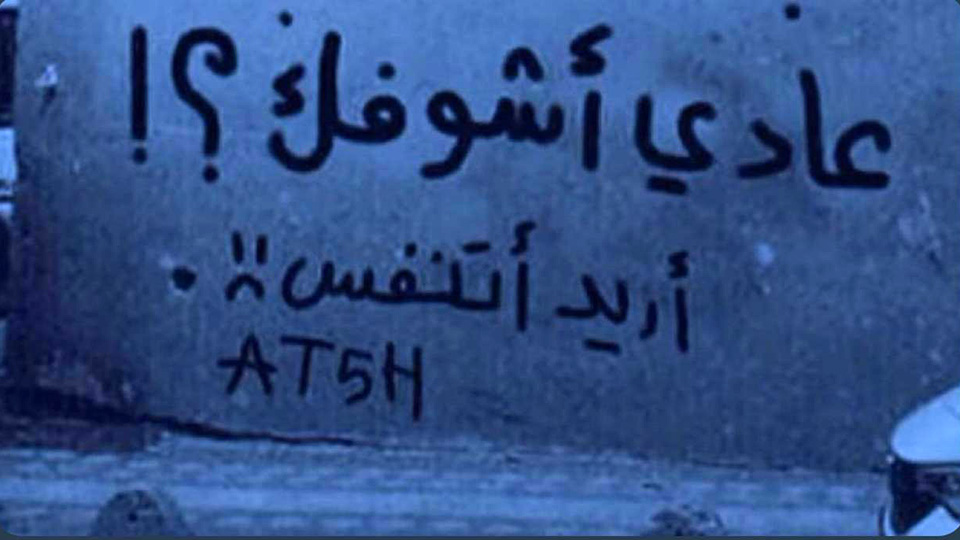 عادي أشوفك؟!
أريد أتنفس :( .
AT5H